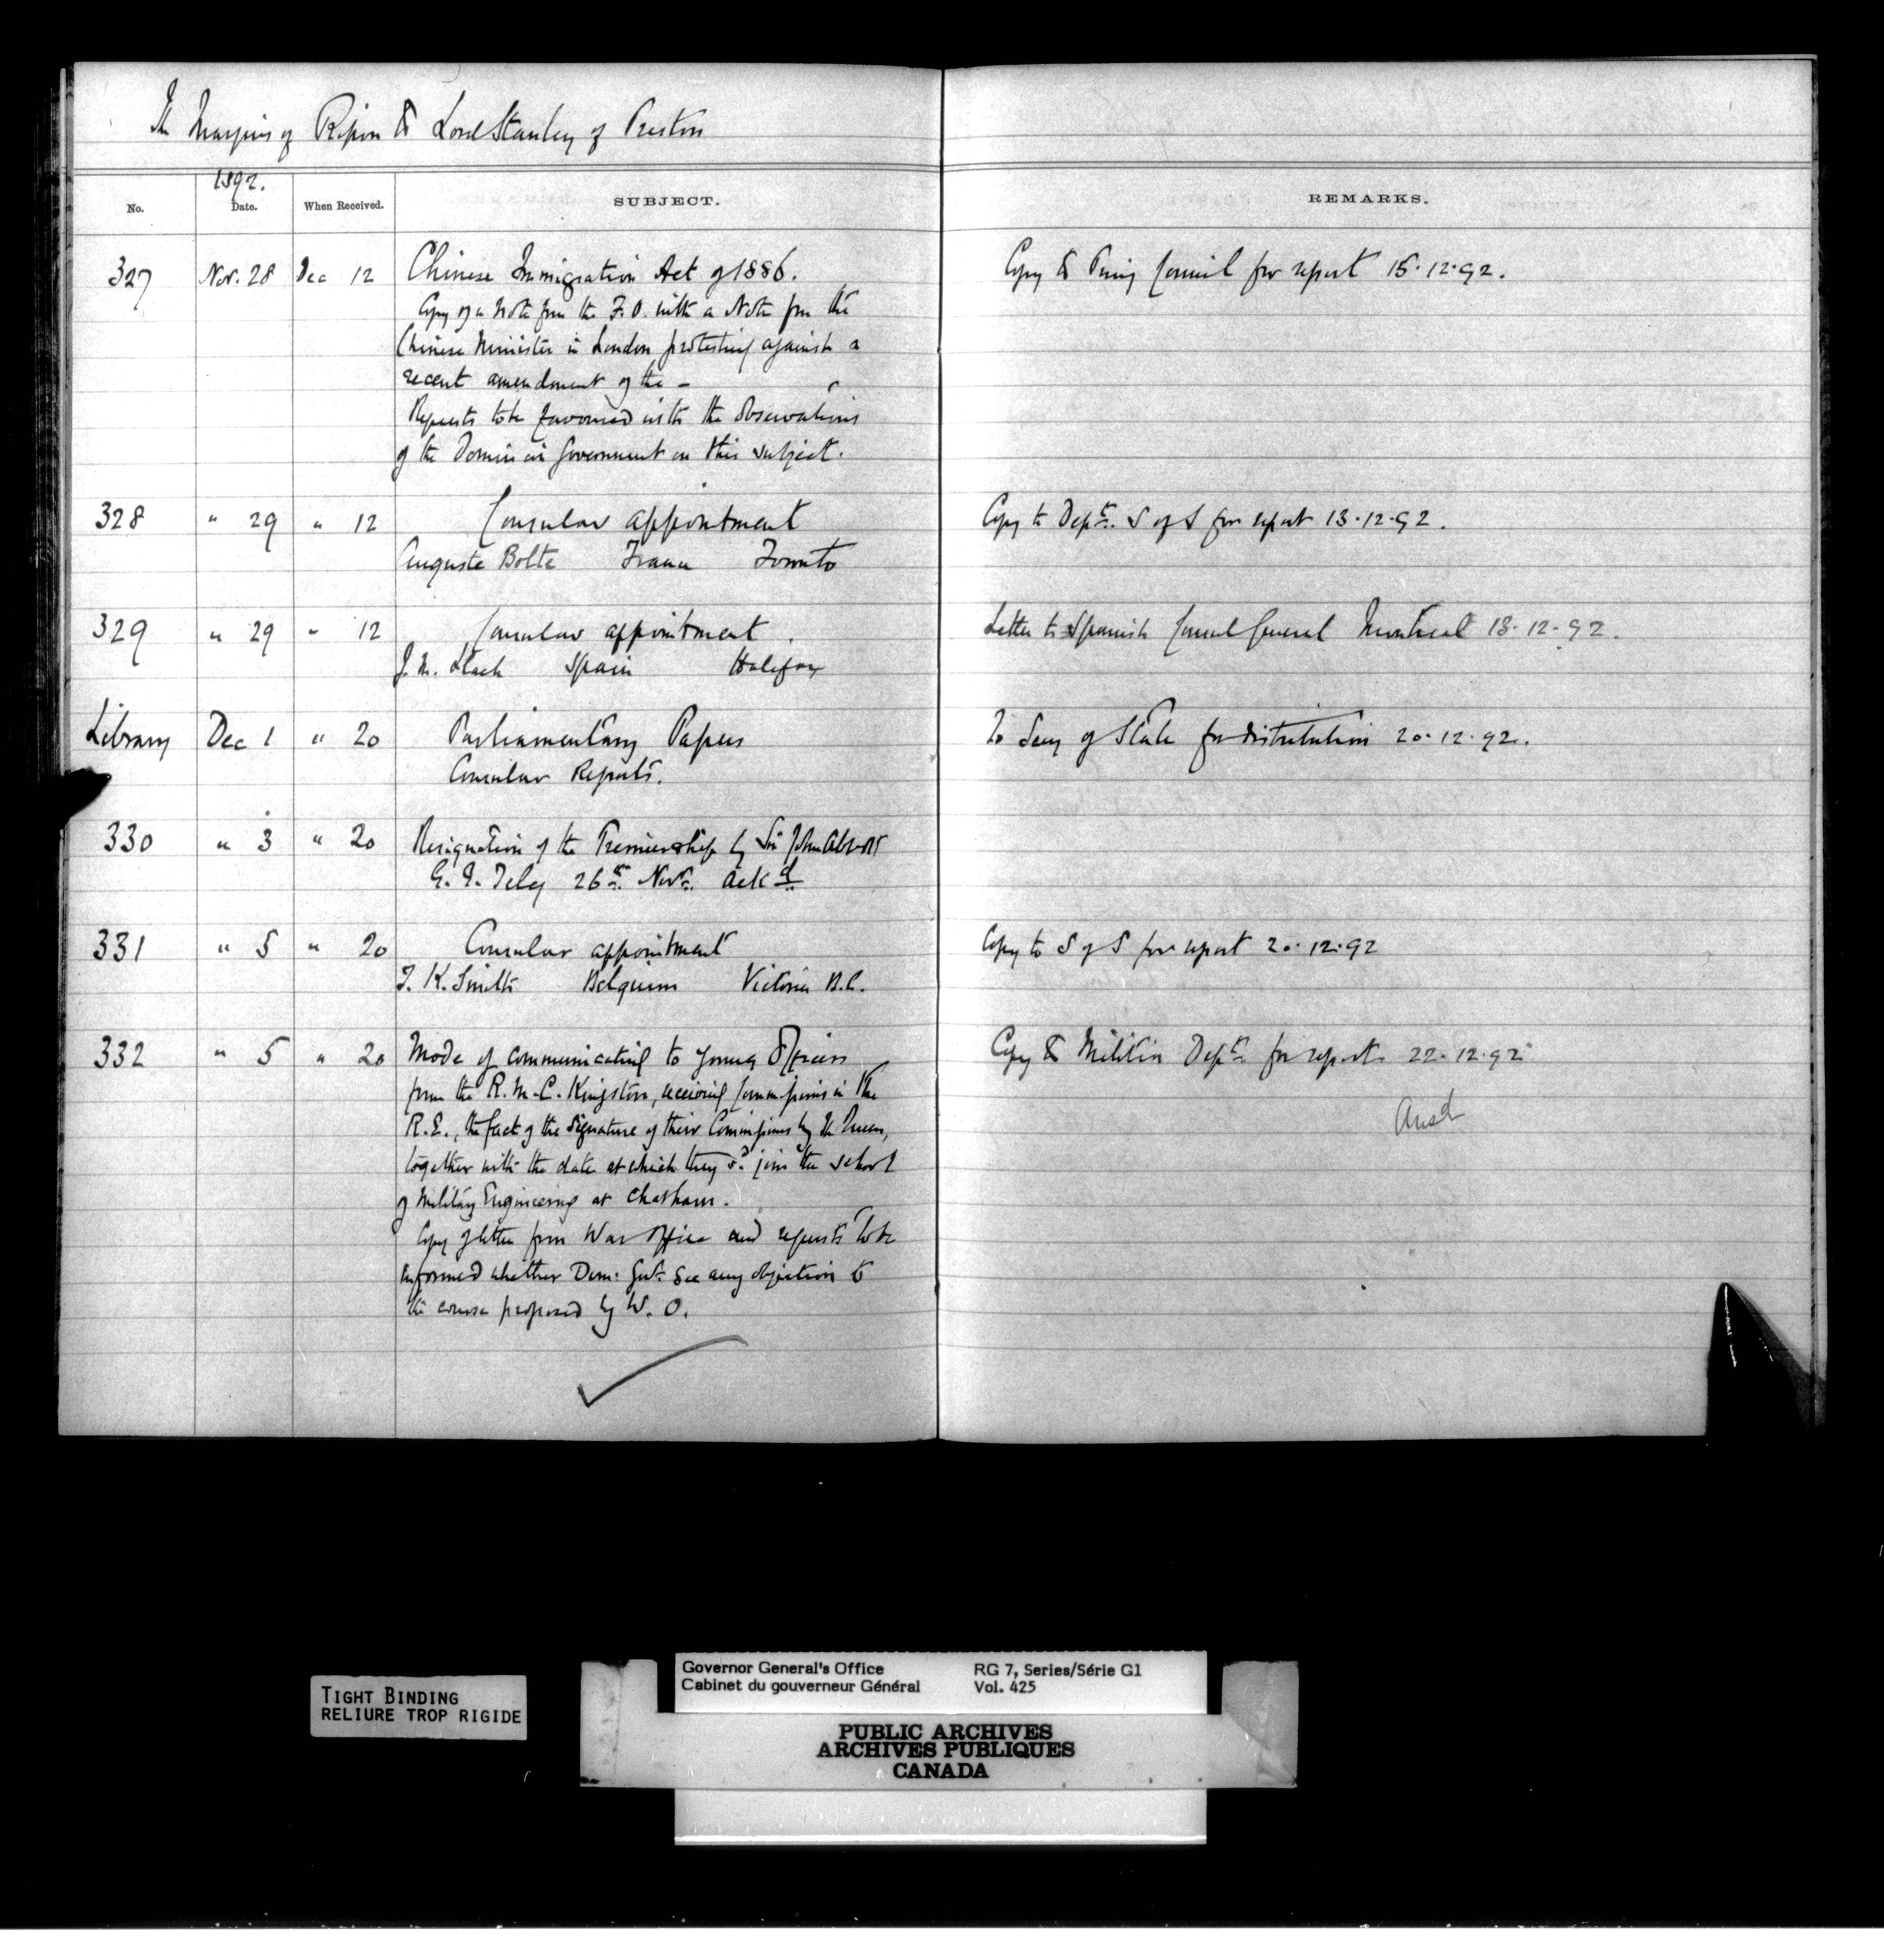 The Marquis of Ripon to Lord Stanley of Preston
1892.
No. Date. When Received. SUBJECT. REMARKS.
327 Nov. 28 Dec 12 Chinese Immigration Act of 1886. Copy to Privy Council for report 15.12.92.
Copy of a Note from the F.O. with a Note from the
Chinese Minister in London protesting against a
recent amendment of the –
Requests to be favoured with the observations
of the Dominion Government on this subject.
328 " 29 " 12 Consular appointment Copy to Deptt. S of S for report 13.12.92.
Auguste Bolte France Toronto
329 " 29 " 12 Consular appointment. Letter to Spanish Consul General Montreal 13.12.92.
J. M. Spain Halifax
Library Dec 1 " 20 Parliamentary Papers To Secy of State for distribution 20.12.92.
Consular Reports.
330 " 3 " 20 Resignation of the Premiership by Sir John Abbott
G. G. Teleg 26th Novr. ackd
331 " 5 " 20 Consular appointment Copy to S of S for report 20.12.92
T. K. Smith Belgium Victoria B.C.
332 " 5 " 20 Mode of communicating to young Officers Copy to Militia Deptt. for report 22.12.92
from the R.M.C. Kingston, receiving Commissions in the
R.E., the fact of the signature of their Commissions by the Queen, Ansd
together with the date at which they sd. join the school
of Military Engineering at Chatham.
Copy of letter from War Office and requests to be
informed whether Dom: Govt. see any objection to
the course proposed by W. O.
TIGHT BINDING
RELIURE TROP RIGIDE
Governor General's Office RG 7, Series/Série G1
Cabinet du gouverneur Général Vol. 425
PUBLIC ARCHIVES
ARCHIVES PUBLIQUES
CANADA